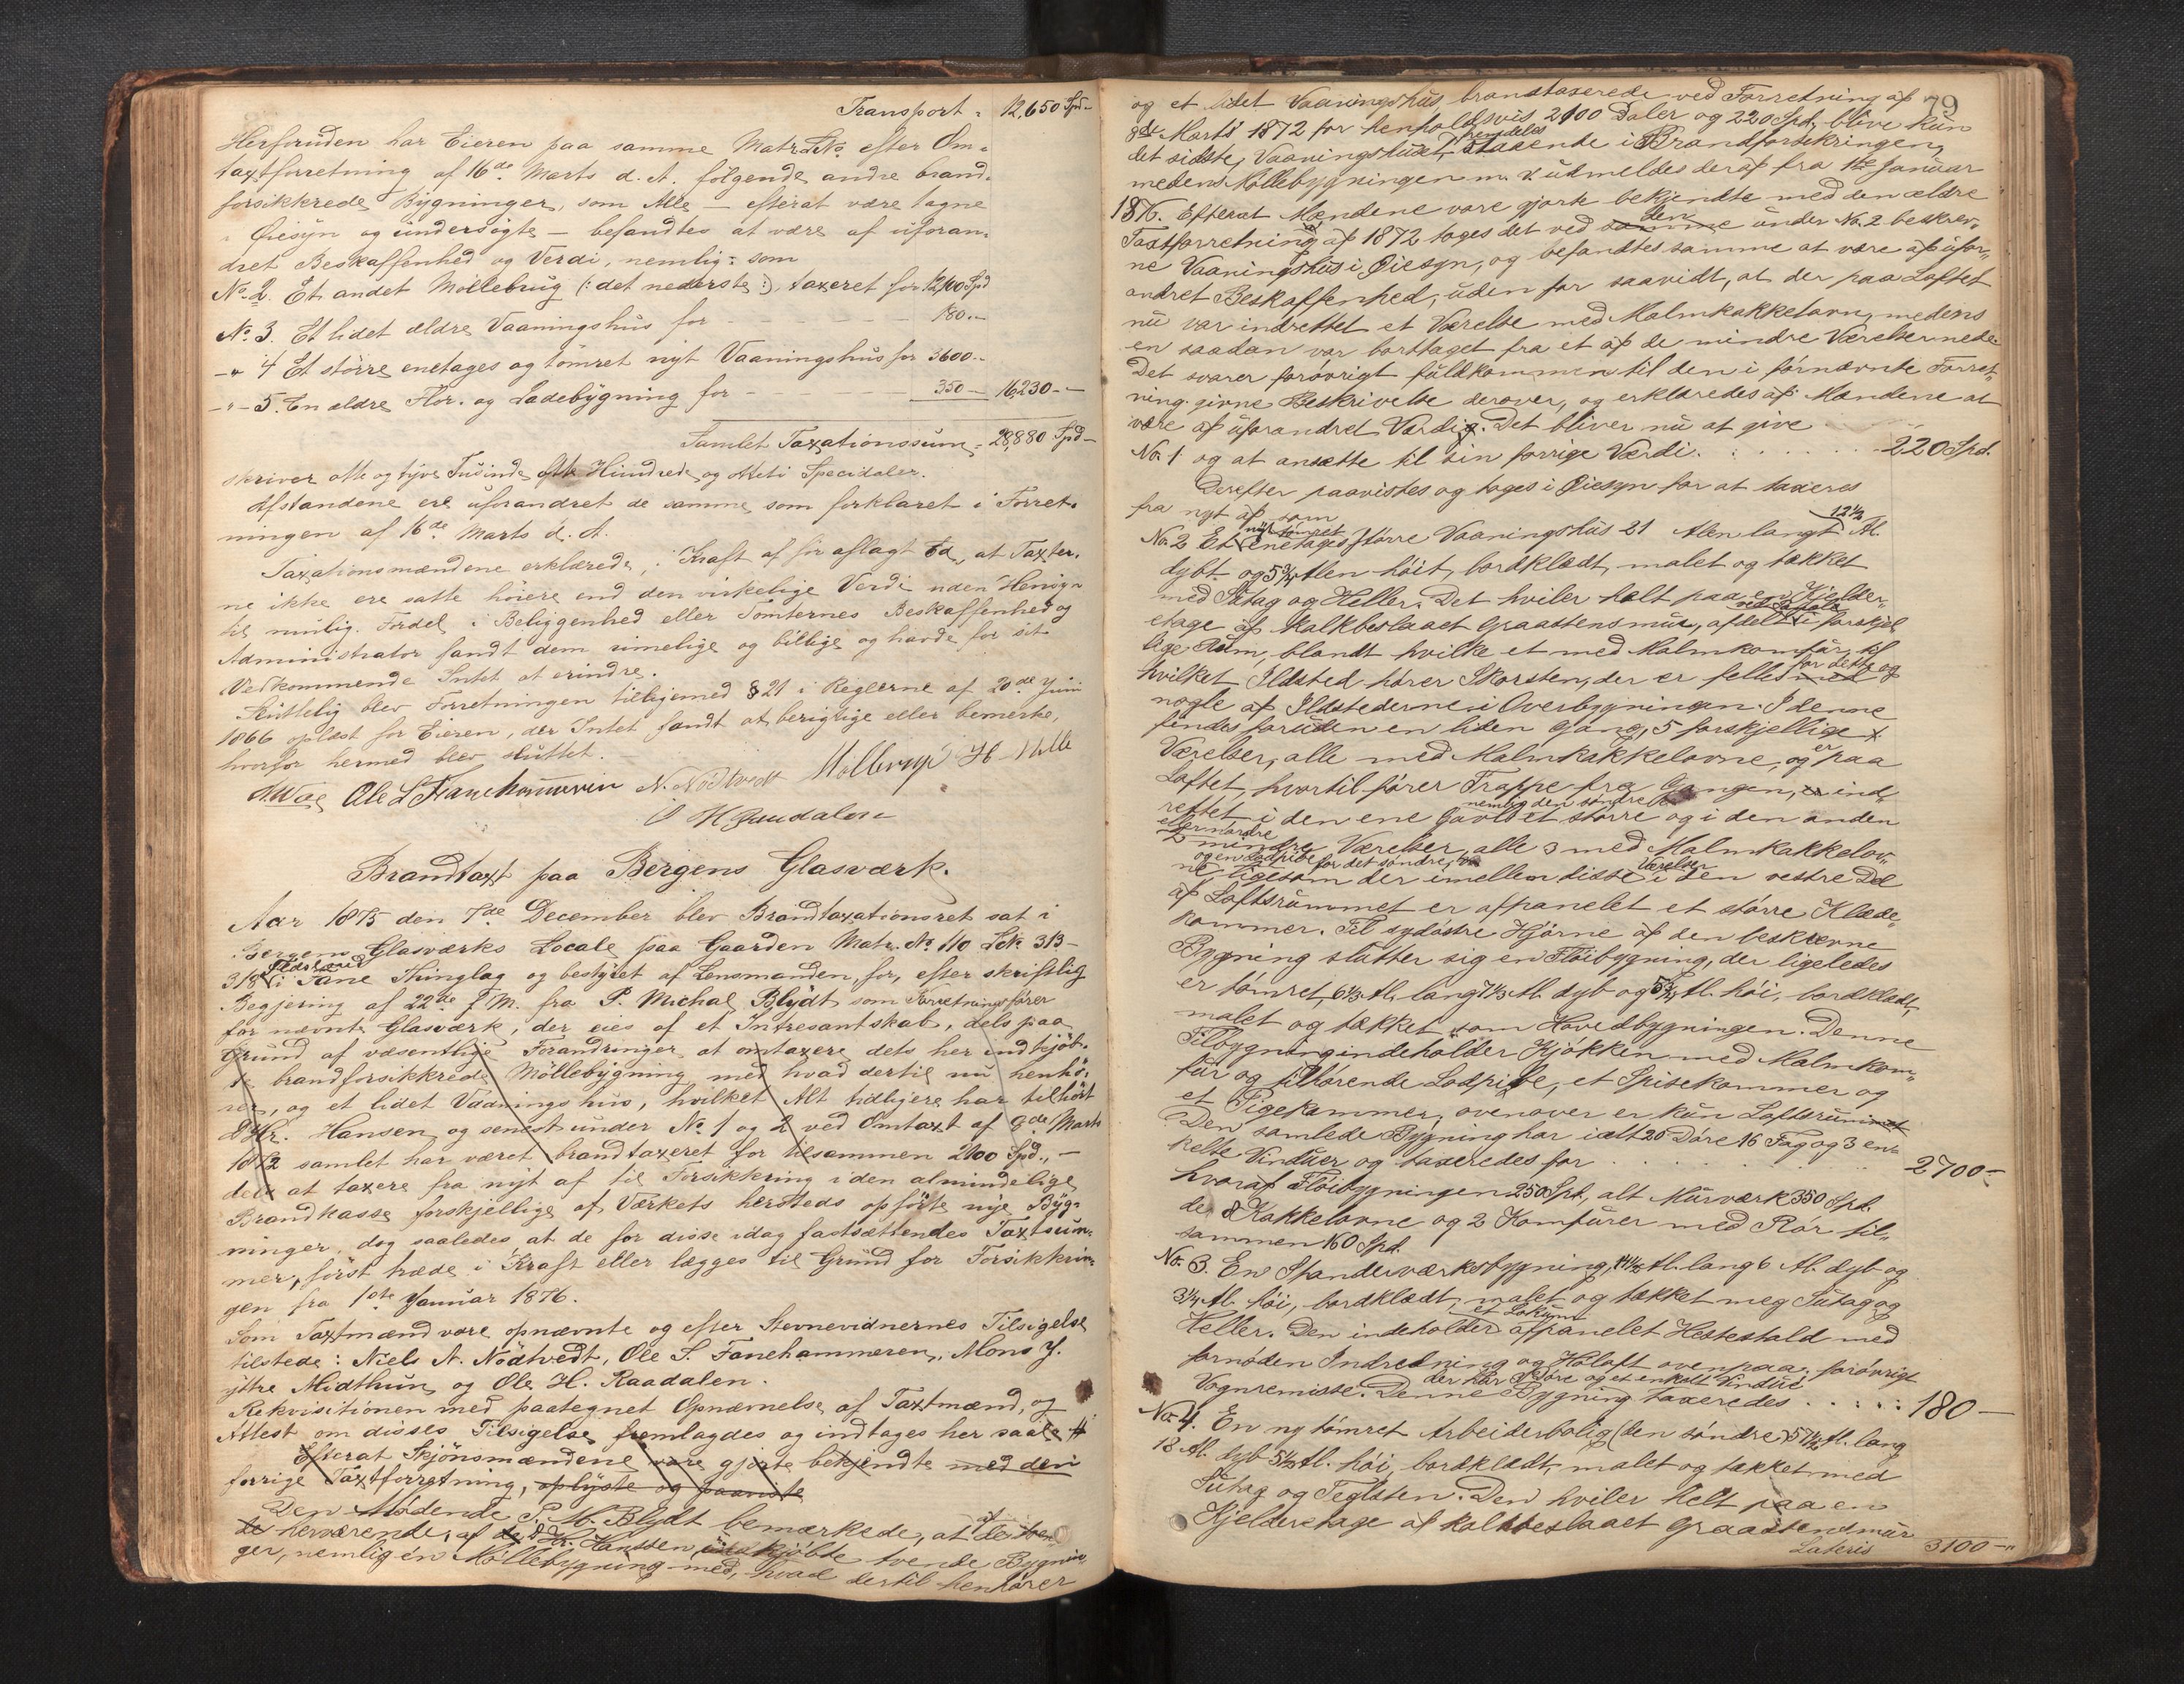 Transport = 12,650 Spd -
Herforuden har Eieren paa samme Matr. No. efter Om-
taxtforretning af 16de Marts d. A. følgende andre brand-
forsikkrede Bygninger, som Alle - efterat være tagne
i Øiesyn og undersøgte - befandtes at være af uforan-
dret Beskaffenhed og Verdi, nemlig: som
No. 2. Et andet Møllebrug (: det nederste :), taxeret for 12,100 Spd
No. 3. Et lidet ældre Vaaningshus for - - - 180.-
-"- 4 Et større enetages og tømret nyt Vaaningshus for 3600.-
-"- 5. En ældre Flor- og Ladebygning for - - - 350 - 16,230 - -
Samlet Taxationssum = 28,880 Spd -
skriver otte og tyve Tusinde otte Hundrede og Otteti Speciedaler.
Afstandene ere uforandret de samme, som forklaret i Forret-
ningen af 16de Marts d. A.
Taxationsmændene erklærede, i Kraft af før aflagt Ed, at Taxter-
ne ikke ere satte høiere end den virkelige Verdi uden Hensyn
til mulig Fordel i Beliggenhed eller Tomternes Beskaffenhed og
Administrator fandt dem rimelige og billige og havde for sit
Vedkommende Intet at erindre.
Sluttelig blev Forretningen tilligemed § 21 i Reglerne af 20de Juni
1866 oplæst for Eieren, der Intet fandt at berigtige eller bemerke,
hvorfor hermed blev sluttet. -
Ole S Fanehammeren N. Nødtvedt Møllerup H
O H Raadalen
Brandtaxt paa Bergens Glasværk.
Aar 1875 den 7de December blev Brandtaxationsret sat i
Bergens Glasværks Locale paa Gaarden Matr. No. 110 Løb. 313-
318 i Fane Thinglag og bestyret af Lensmanden, for, efter skriftlig
Begjering af 22de f. M. fra P. Michal Blydt som Forretningsfører
for nævnte Glasværk, der eies af et Intresantskab, dels paa
Grund af væsentlige Forandringer at omtaxere dets her indkjøb-
te brandforsikkrede Møllebygning med hvad dertil nu henhø-
rer, og et lidet Vaaningshus, hvilket Alt tidligere har tilhørt
Hr. Hansen og senest under No. 1 og 2 ved Omtaxt af 9de Marts
1872 samlet har været brandtaxeret for tilsammen 2100 Spd., -
dels at taxere fra nyt af til Forsikkring i den almindelige
Brandkasse forskjellige af Værkets hersteds opførte nye Byg-
ninger, dog saaledes at de for disse idag fastsættendes Taxtsum-
mer, først træde i Kraft eller lægges til Grund for Forsikkrin-
gen fra 1ste Januar 1876.
Som Taxtmænd vare opnævnte og efter Stevnevidnernes Tilsigelse
tilstede: Niels N. Nødtvedt, Ole S. Fanehammeren, Mons J.
ytre Midthun og Ole H. Raadalen.
Rekvisitionen med paategnet Opnævnelse af Taxtmænd, og
Attest om disses Tilsigelse fremlagdes og indtages her saale #
Efterat Skjønsmændene vare gjorte bekjendte med den
forrige Taxtforretning, oplyste og paaviste
Den Mødende P. M. Blydt bemærkede, at af de
de herværende, af Hr. Hanssen kjøbte tvende Bygnin-
ger, nemlig én Møllebygning med, hvad dertil henhører
79
og et lidet Vaaningshus, brandtaxerede ved Forretning af
8de Marts 1872 for henholdsvis 2100 Daler og 220 Spd, blive kun
det sidste, Vaaningshuset, fremdeles staaende i Brandforsikringen,
medens Møllebygningen m. v. udmeldes deraf fra 1ste Januar
1876. Efterat Mændene vare gjorte bekjendte med den ældre
Taxtforretning af 1872 toges det ved samme den under No. 2 beskrev-
ne Vaaningshus i Øiesyn, og befandtes samme at være af ufor-
andret Beskaffenhed, uden for saavidt, at der paa Loftet
nu var indrettet et Værelse med Malmkakkelovn, medens
en saadan var borttaget fra et af de mindre Værelser nede.
Det svarer forøvrigt fuldkommen til den i førnævnte Forret-
ning givne Beskrivelse derover, og erklæredes af Mændene at
være af uforandret Værdi. Det bliver nu at give
No. 1 og at ansætte til sin forrige Værdi. . . . . . 220 Spd.
Derefter paavistes og toges i Øiesyn for at taxeres
fra nyt af som
No. 2 Et nyt tømret enetages større Vaaningshus 21 Alen langt 12½ Al.
dybt og 5¾ Alen høit, bordklædt, malet og tækket
med Sutag og Heller. Det hviler helt paa en Kjelder-
etage af kalkbeslaaet Graastensmur, afdelt i forskjel-
lige Rum, blandt hvilke et med Malmkomfür, til
hvilket Ildsted hører Skorsten, der er felles med for dette og
nogle af Ildstederne i Overbygningen. I denne
findes foruden en liden Gang, 5 forskjellige
Værelser, alle med Malmkakkelovne, og er paa
Loftet, hvortil fører Trappe fra Gangen, er ind-
rettet i den ene Gavl nemlig den søndre et større og i den anden
eller nordre 2 mindre Værelser, alle 3 med Malmkakkelov-
ne, og en Ladpibe for det søndre, ligesom der imellem disse Værelser i den vestre Del
af Loftsrummet er afpanelet et større Klæde-
kammer. Til sydøstre Hjørne af den beskrevne
Bygning slutter sig en Fløibygning, der ligeledes
er tømret, 6⅓ Al. lang 7⅓ Al. dyb og 5¾ Al. høi, bordklædt,
malet og tækket som Hovedbygningen. Denne
Tilbygning indeholder Kjøkken med Malmkom-
fur og tilhørende Ladpibe, et Spisekammer og
et Pigekammer, ovenover er kun Loftsrummet
Den samlede Bygning har ialt 20 Døre 16 Fag og 3 en-
kelte Vinduer og taxeredes for . . . . . . 2700 -
hvoraf Fløibygningen 250 Spd, alt Murværk 350 Spd.
de 8 Kakkelovne og 2 Komfurer med Rør til-
sammen 160 Spd.
No. 3. En Standerværksbygning, 14½ Al. lang 6 Al. dyb og
3¼ Al. høi, bordklædt, malet og tækket meg Sutag og
Heller. Den indeholder et Lokum afpanelet Hestestald med
fornøden Indredning og Høloft ovenpaa, forøvrigt
Vognremisse. der har Døre og et enkelt Vindue Denne Bygning taxeredes . . . . . 180 -
No. 4. En ny tømret Arbeiderbolig (den søndre) 57½ Al. lang
12 Al. dyb 5½ Al. høi, bordklædt, malet og tækket med
Sutag og Teglsten. Den hviler helt paa en
Kjelderetage af kalkbeslaaet Graastensmur
Lateris 3100 -"